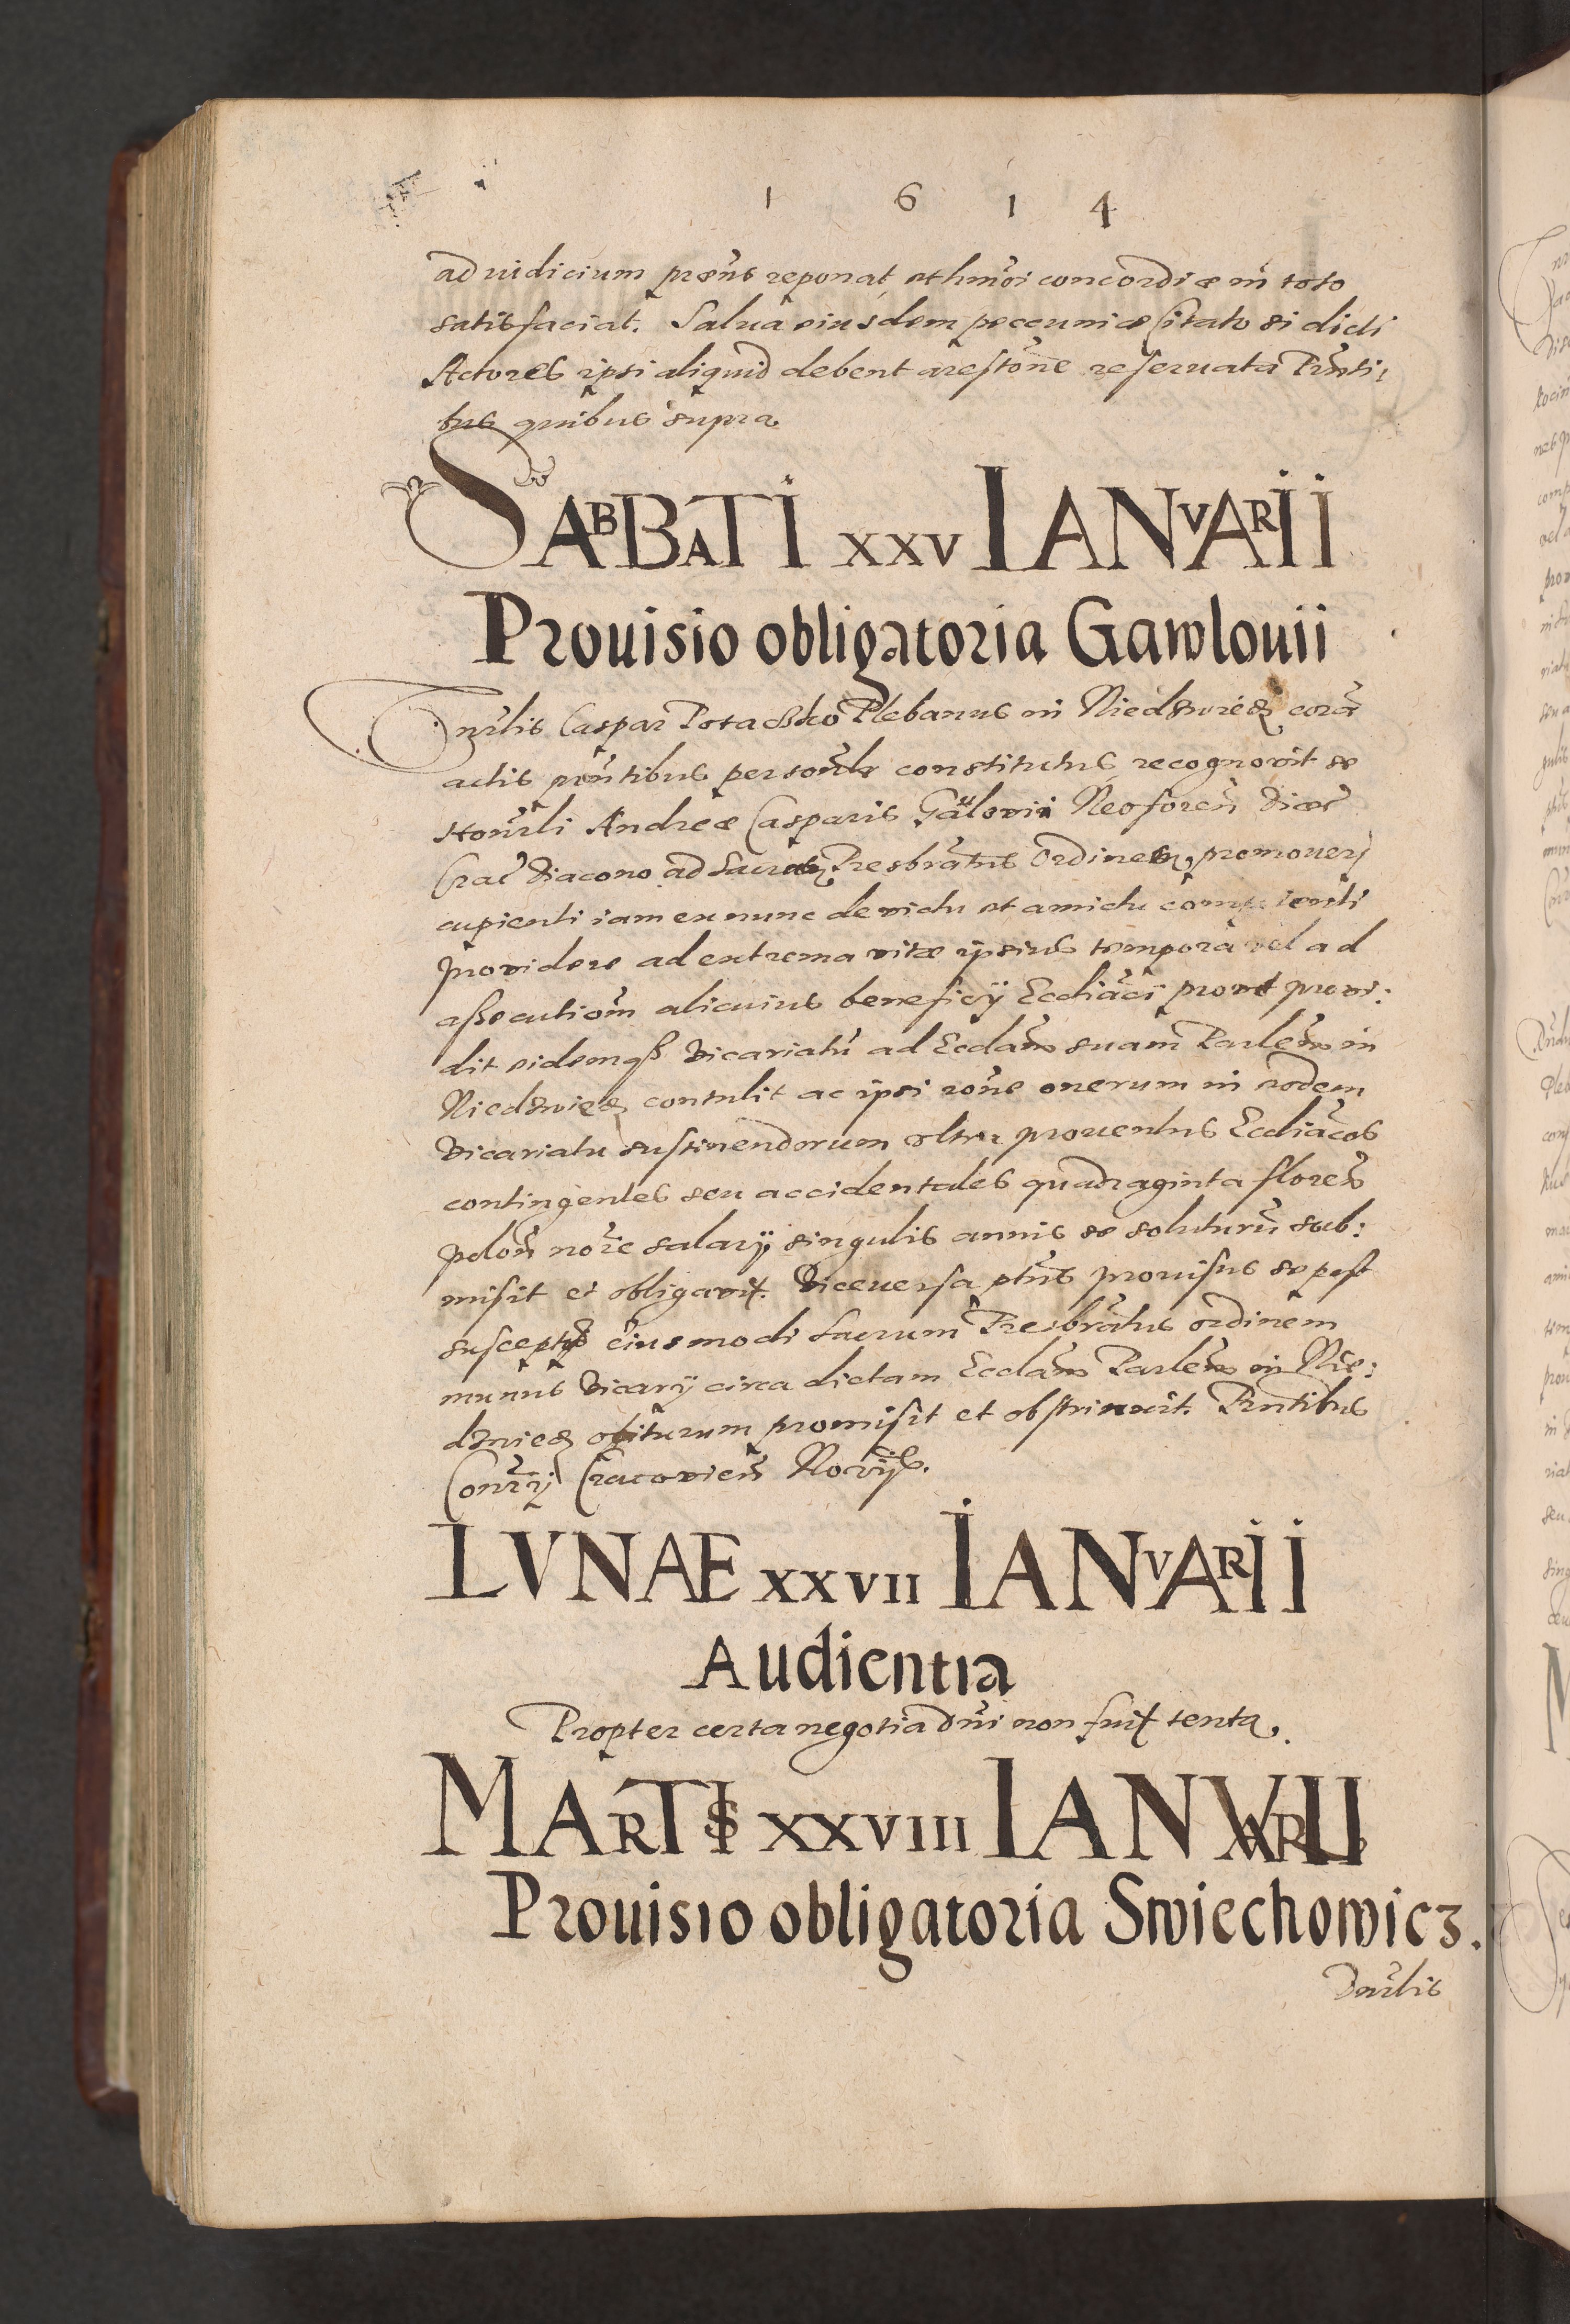 1 6 1 4
ad iudicium præñs reponat, et hmõi concordiæ in toto
satisfaciat. Salua eiusdem pecuniæ Citato si dicti
Actores ipsi aliquid debent arestõne reseruata Prñti,
bus quibus supra.
SABBATI XXV IANVARII
Prouisio obligatoria Gawlouii
Caspar Plebanus in Niedzwiedz corã
actis prñtibus personlr constitutus recognovit se
Honrli Andreæ Casparis Neoforeñ Diœc
Crac Diacono ad Sacrum Presbratus Ordinem promoueri
cupienti iam ex nunc de victu et amictu competenti
providere ad extrema vitæ ipsius tempora vel ad
assecutiom alicuius beneficij Ecclíaci prout provi:
dit eidemqß Vicariatũ ad Ecclam suam Parlem in
Niedzwiedz contulit ac ipsi rone onerum in eodem
Vicariatu sustinendorum ultra prouentus Eccliacos
contingentes seu accidentales quadraginta floreñ
poloñ noïe salarij singulis annis se soluturũ sub:
misit et obligavit. Viceuersa ptus prouisus se post
susceptũ eiusmodi Sacrum Presbratus ordinem
munus Vicarij circa dictam Ecclam Parlem in Nie:
dzwiedz obiturum promisit et obstrinxit. Prntibus
Cracovieñ Norijs.
LVNAE XXVII IANVARII
Audientia
Propter certa negotia dñi non fuit tenta.
MARTIS XXVIII IANVARII
Prouisio obligatoria Swiechowicz.